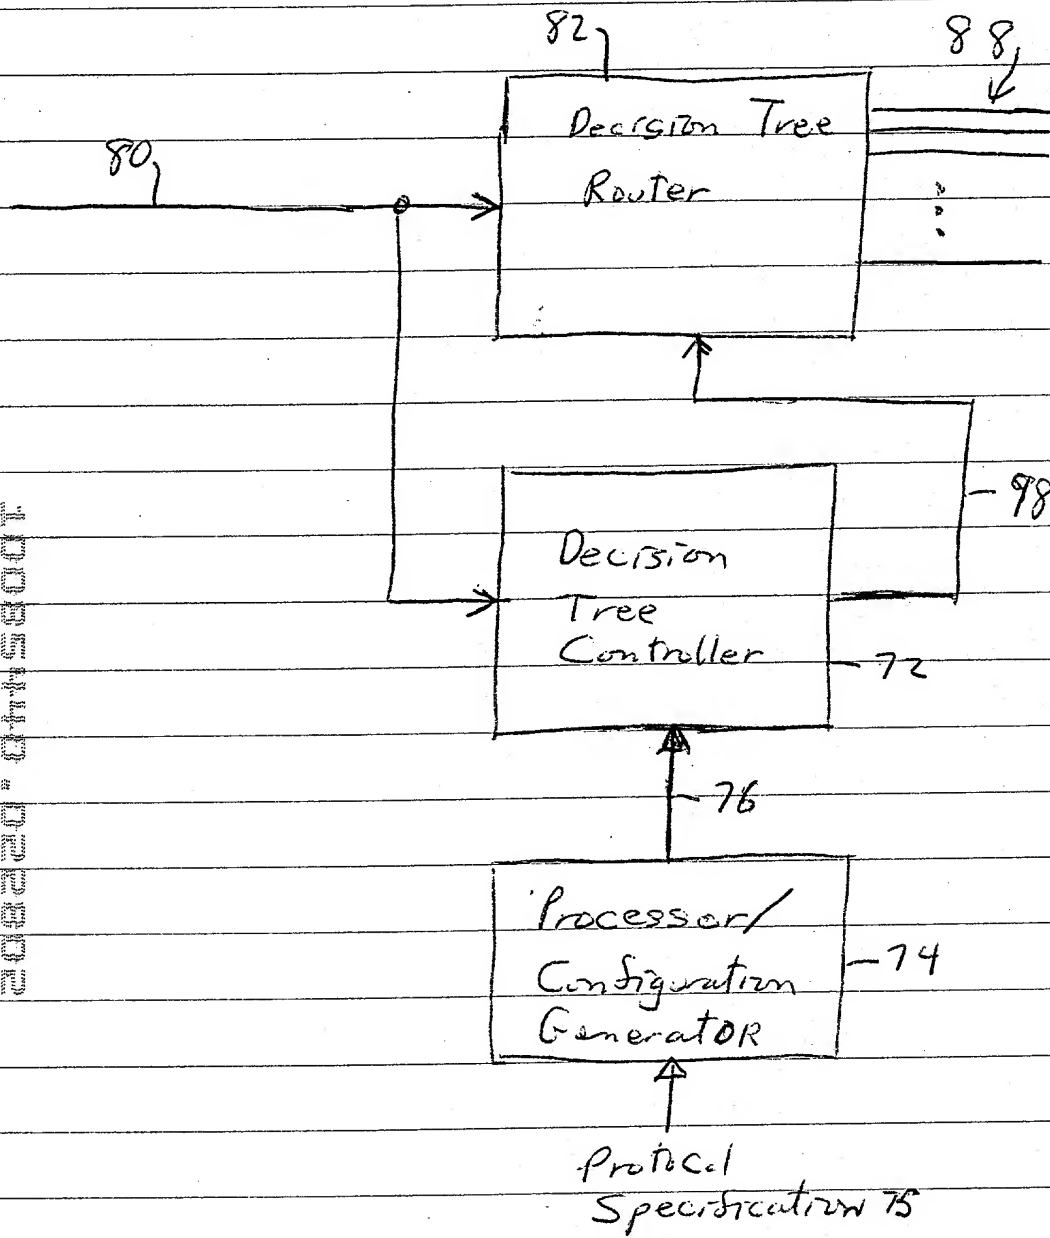 82
88
Decision Tree
Router
80
98
Decision
Tree
Controller
72
76
Processor/
Configuration
GeneratOR
74
Protocol
Specification 75
10085440.022802